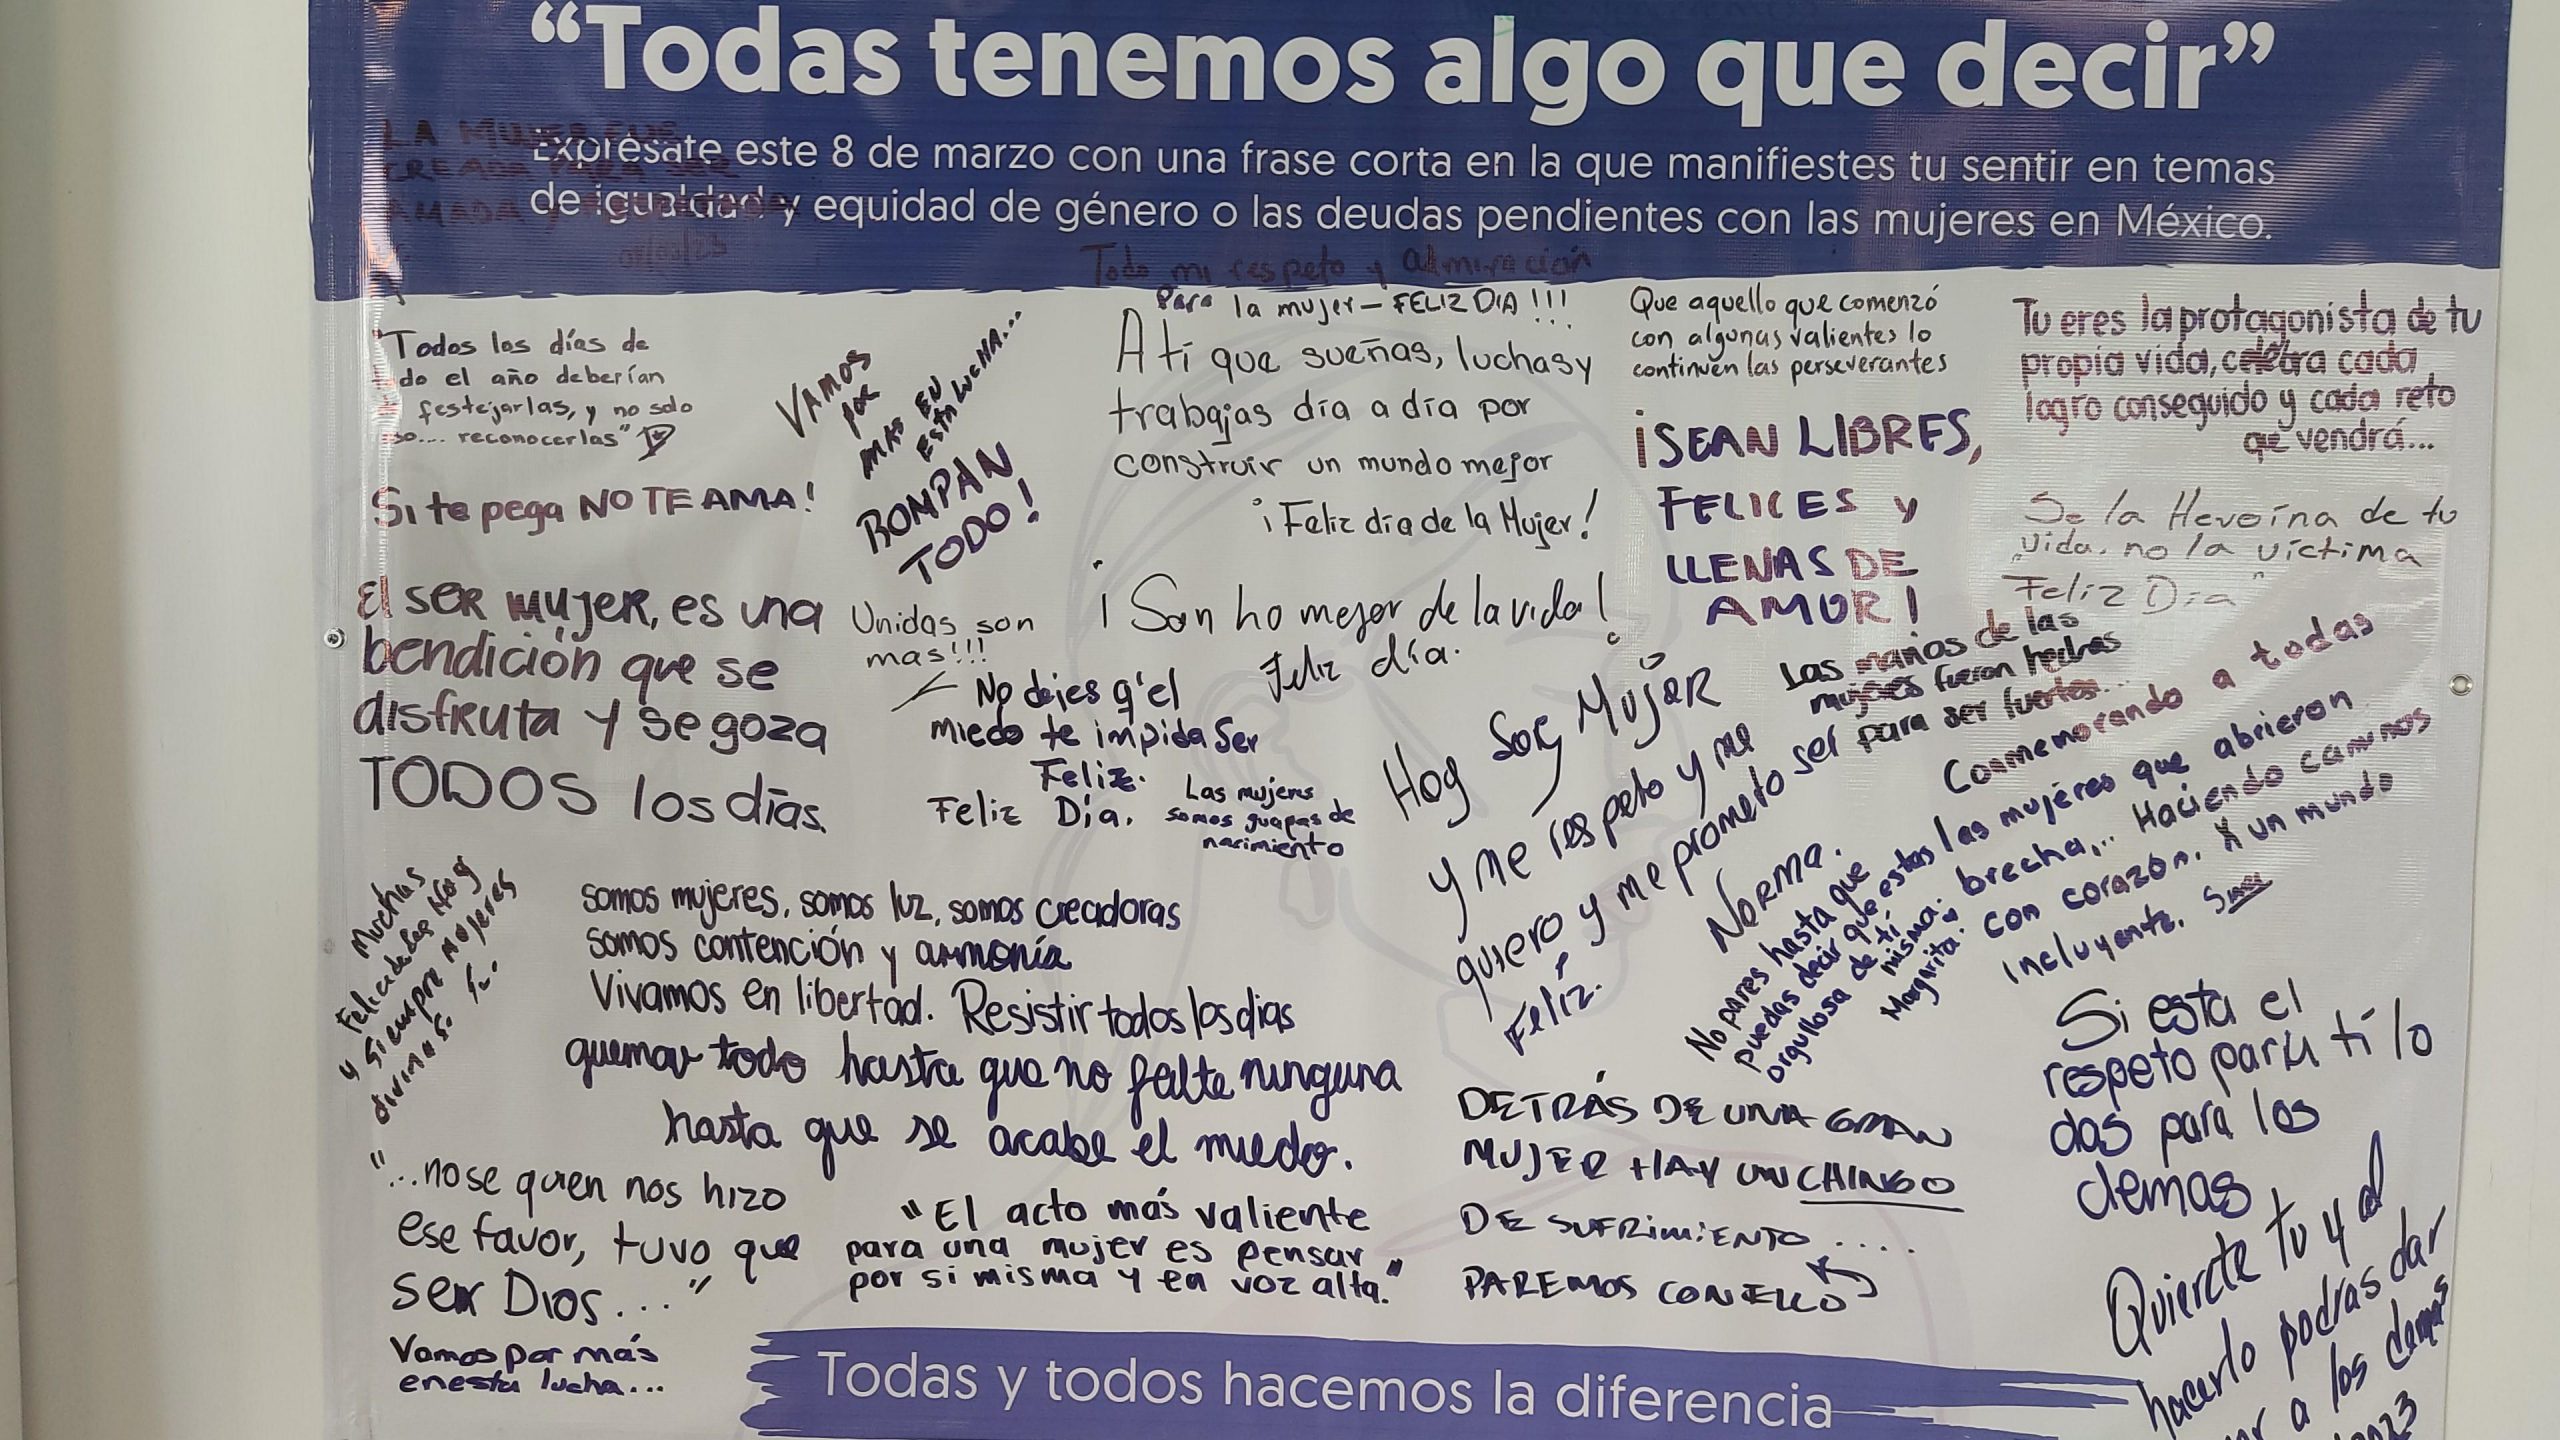 “Todas tenemos algo que decir”
Exprésate este 8 de marzo con una frase corta en la que manifiestes tu sentir en temas
de igualdad y equidad de género o las deudas pendientes con las mujeres en México.
LA MUJER FUE
CREADA PARA SER
AMADA Y
08/03/23
Todo mi respeto y admiración
Para la mujer - FELIZ DIA !!!
"Todos los días de
do el año deberían
festejarlas, y no solo
reconocerlas"
VAMOS
por
MAS EN
ESTA LUCHA...
ROMPAN
TODO!
Si te pega NO TE AMA!
A ti que sueñas, luchas y
trabajas día a día por
construir un mundo mejor
¡Feliz día de la Mujer!
Que aquello que comenzó
con algunas valientes lo
continúen las perseverantes
Tu eres la protagonista de tu
propia vida, celebra cada
logro conseguido y cada reto
que vendrá...
¡SEAN LIBRES,
FELICES y
LLENAS DE
AMOR!
Se la Heroína de tu
vida, no la víctima
Feliz Día
El SER MUJER, es una
bendición que se
disfruta y se goza
TODOS los días.
Unidas son
mas!!!
¡Son ho mejor de la vida!
Feliz día.
No dejes q'el
miedo te impida ser
Feliz.
Feliz Día.
Las mujeres
somos guapas de
nacimiento
Hoy Soy Mujer
y me respeto y me
quiero y me prometo ser
Feliz.
Norma.
Las manos de las
mujeres fueron hechas
para ser fuertes...
Conmemorando a todas
las mujeres que abrieron
brecha... Haciendo caminos
con corazón. X un mundo
incluyente.
No pares hasta que
puedas decir que estas
orgullosa de tí
misma.
Margarita.
Muchas
Felicidades Hoy
y siempre Mujeres
divinas
somos mujeres, somos luz, somos creadoras
somos contención y armonía
Vivamos en libertad. Resistir todos los dias
quemar todo hasta que no falte ninguna
hasta que se acabe el miedo.
"...nose quien nos hizo
ese favor, tuvo que
ser Dios..."
Vamos por más
en esta lucha...
"El acto más valiente
para una mujer es pensar
por si misma y en voz alta."
DETRÁS DE UNA GRAN
MUJER HAY UN CHINGO
DE SUFRIMIENTO....
PAREMOS CON ELLO
Si esta el
respeto para tí lo
das para los
demas
Quierete tu y al
hacerlo podras dar
a los demas
Todas y todos hacemos la diferencia